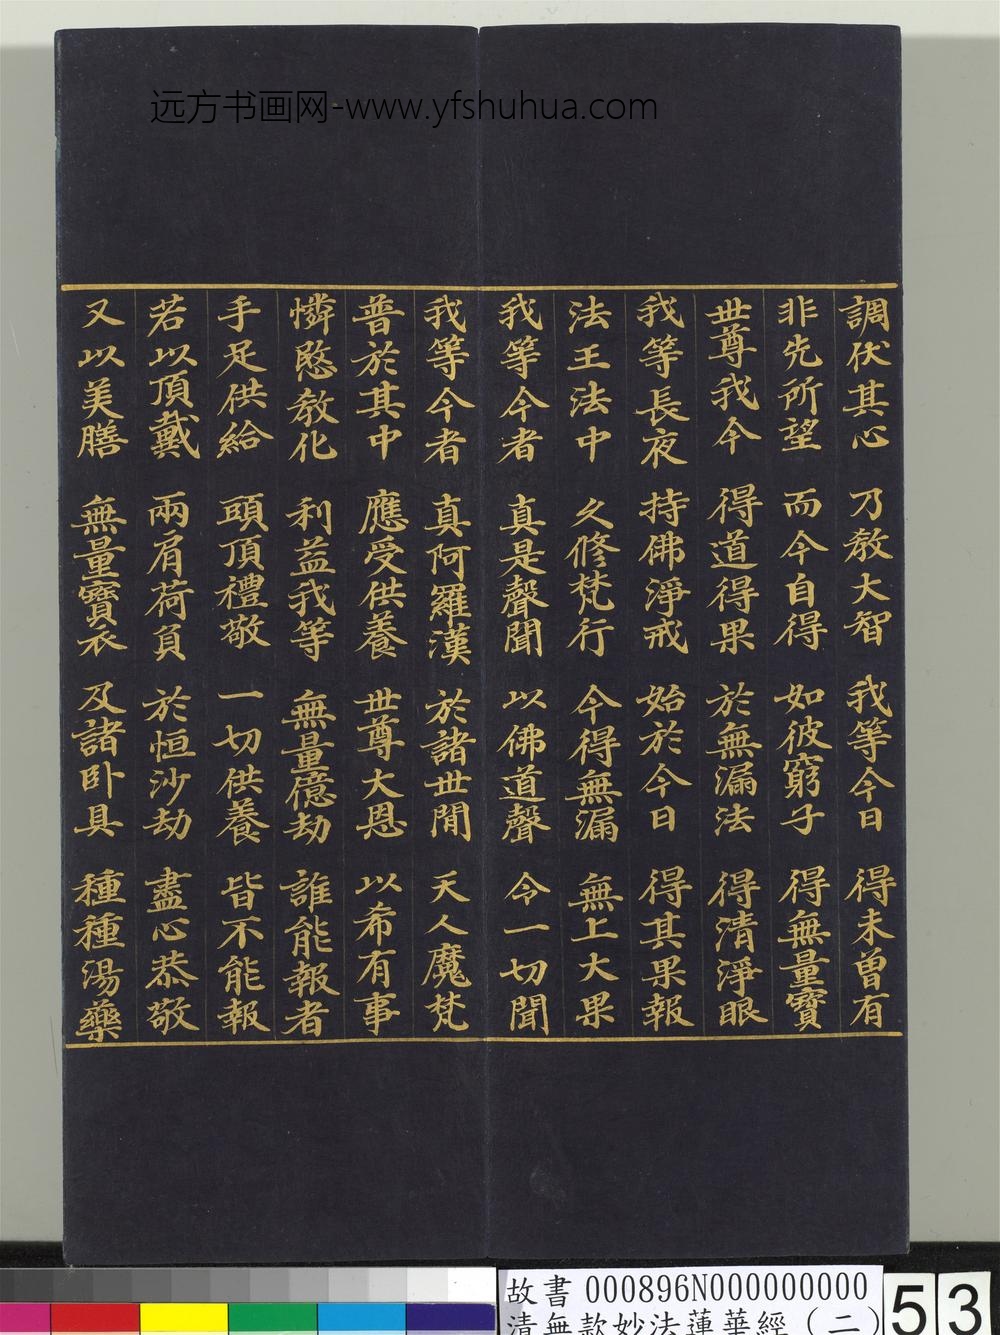 远方书画网-www.yfshuhua.com
調伏其心 乃教大智 我等今日 得未曾有
非先所望 而今自得 如彼窮子 得無量寶
世尊我今 得道得果 於無漏法 得清淨眼
我等長夜 持佛淨戒 始於今日 得其果報
法王法中 久修梵行 今得無漏 無上大果
我等今者 真是聲聞 以佛道聲 令一切聞
我等今者 真阿羅漢 於諸世間 天人魔梵
普於其中 應受供養 世尊大恩 以希有事
憐愍教化 利益我等 無量億劫 誰能報者
手足供給 頭頂禮敬 一切供養 皆不能報
若以頂戴 兩肩荷負 於恒沙劫 盡心恭敬
又以美膳 無量寶衣 及諸卧具 種種湯藥
故書 000896N000000000
清無款妙法蓮華經（二）
53